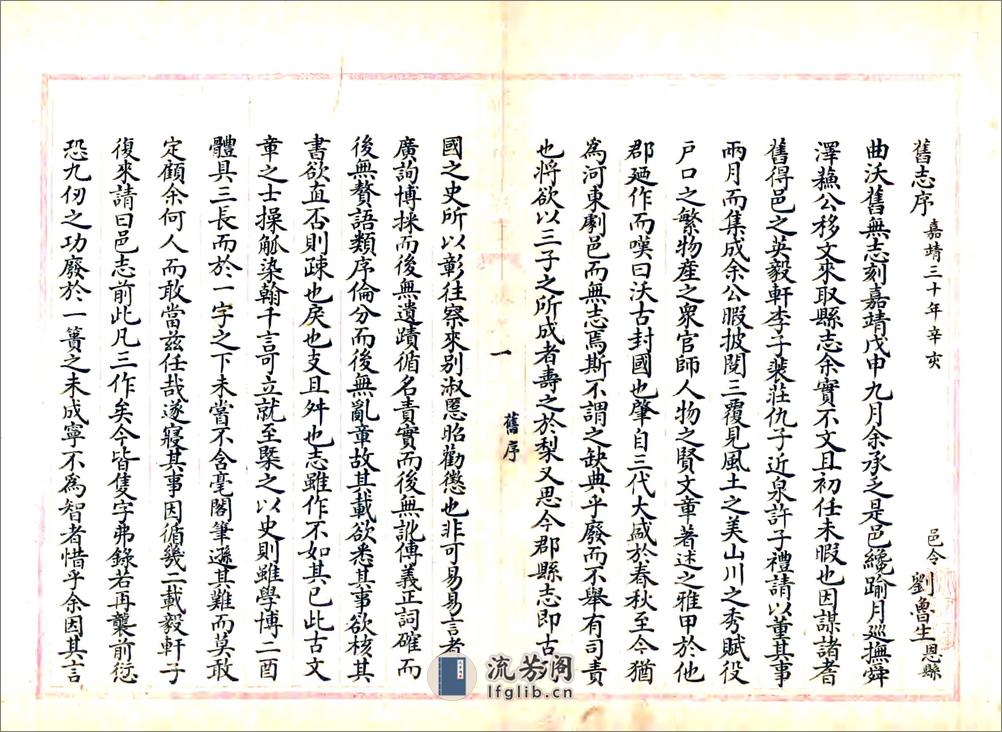 舊志序 嘉靖三十年辛亥 邑令 劉魯生 恩縣
曲沃舊無志刻嘉靖戊申九月余承乏是邑纔踰月巡撫舜
澤蘓公移文來取縣志余實不文且初任未暇也因謀諸耆
舊得邑之英毅軒李子裴莊仇子近泉許子禮請以董其事
兩月而集成余公暇披閱三覆見風土之美山川之秀賦役
戶口之繁物產之衆官師人物之賢文章著述之雅甲於他
郡廼作而嘆曰沃古封國也肇自三代大盛於春秋至今猶
為河東劇邑而無志焉斯不謂之缺典乎廢而不舉有司責
也將欲以三子之所成者壽之於梨又思今郡縣志即古
一 舊序
國之史所以彰往察來別淑慝昭勸懲也非可易易言者
廣詢博採而後無遺蹟循名責實而後無訛傳義正詞確而
後無贅語類序倫分而後無亂章故其載欲悉其事欲核其
書欲直否則疎也戾也支且舛也志雖作不如其已此古文
章之士操觚染翰千言可立就至槩之以史則雖學博二酉
體具三長而於一字之下未嘗不含毫閣筆遜其難而莫敢
定顧余何人而敢當兹任哉遂寢其事因循幾二載毅軒子
復來請曰邑志前此凡三作矣今皆隻字弗錄若再襲前愆
恐九仞之功廢於一簣之未成寧不為智者惜乎余因其言
流芳阁
lfglib.cn